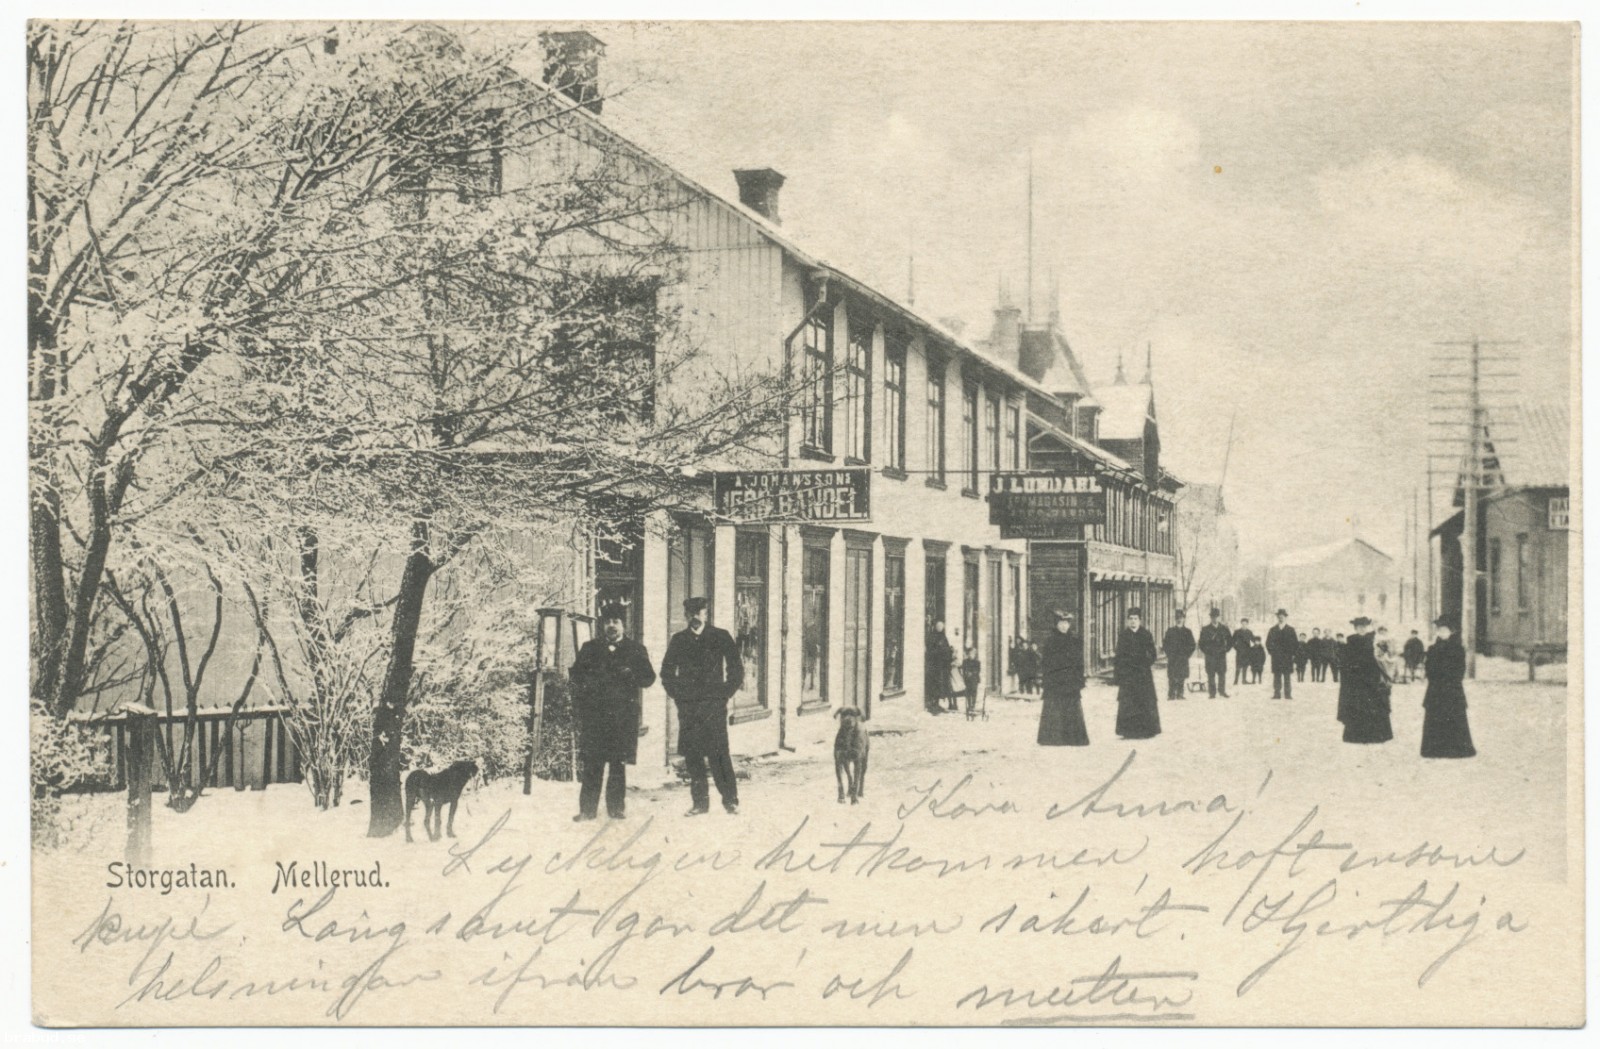 A. JOHANSSONS
JERNHANDEL.
J. LUNDAHL
MAGASIN &
Storgatan. Mellerud.
Kära Anna!
Lyckligen hitkommen, haft ensam
kupé. Långsamt går det men säkert. Hjertliga
helsningar ifrån bror och